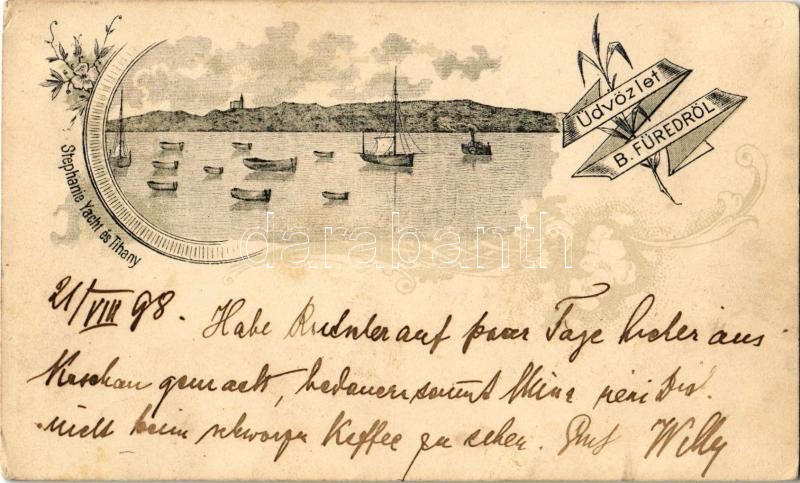 Üdvözlet
B. FÜREDRŐL
Stephanie Yacht és Tihany
darabanth
21/VIII 98. Habe auf paar Tage hieher aus
Kaschau gemacht,
nicht beim schwarzen Kaffee zu sehen. Gruß Willy